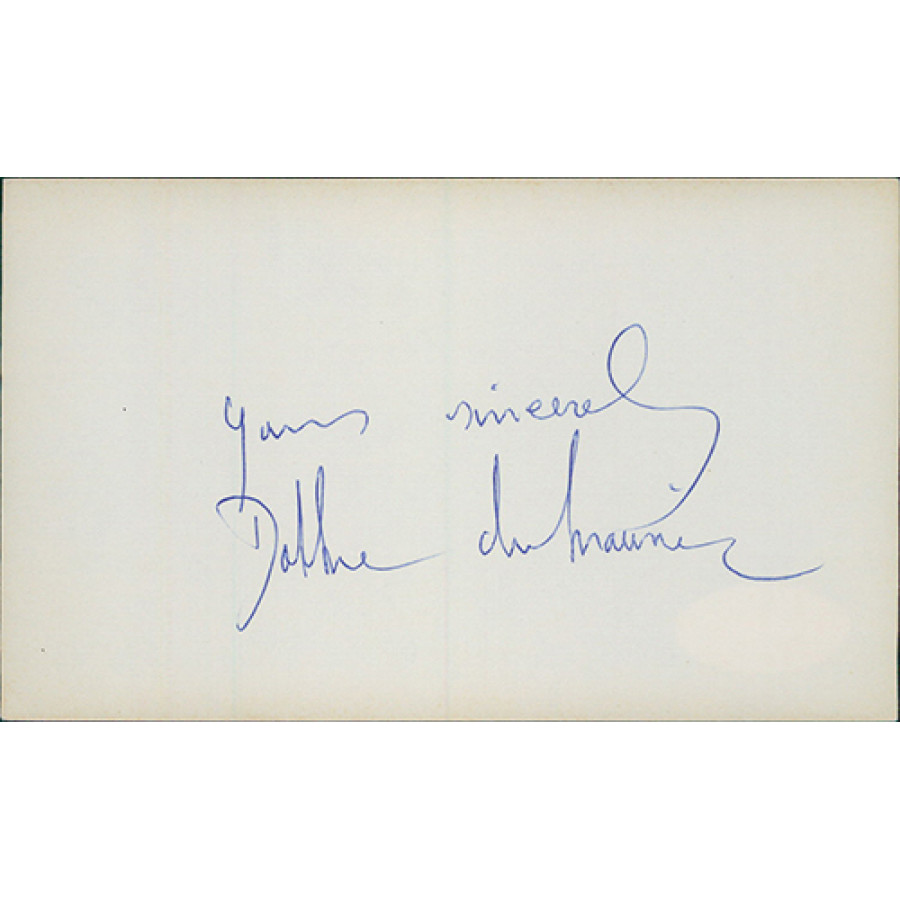 yours sincerely
Daphne du Maurier